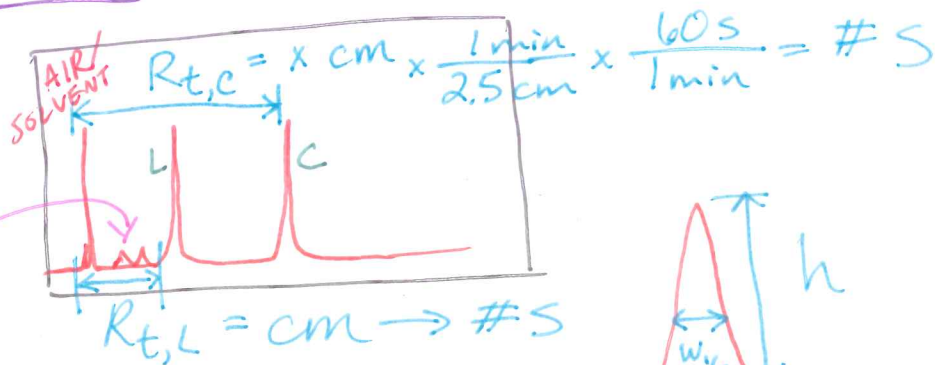 AIR/
SOLVENT
R_t,C = x cm × 1 min / 2.5 cm × 60 s / 1 min = # S
L
C
h
R_t,L = cm → # S